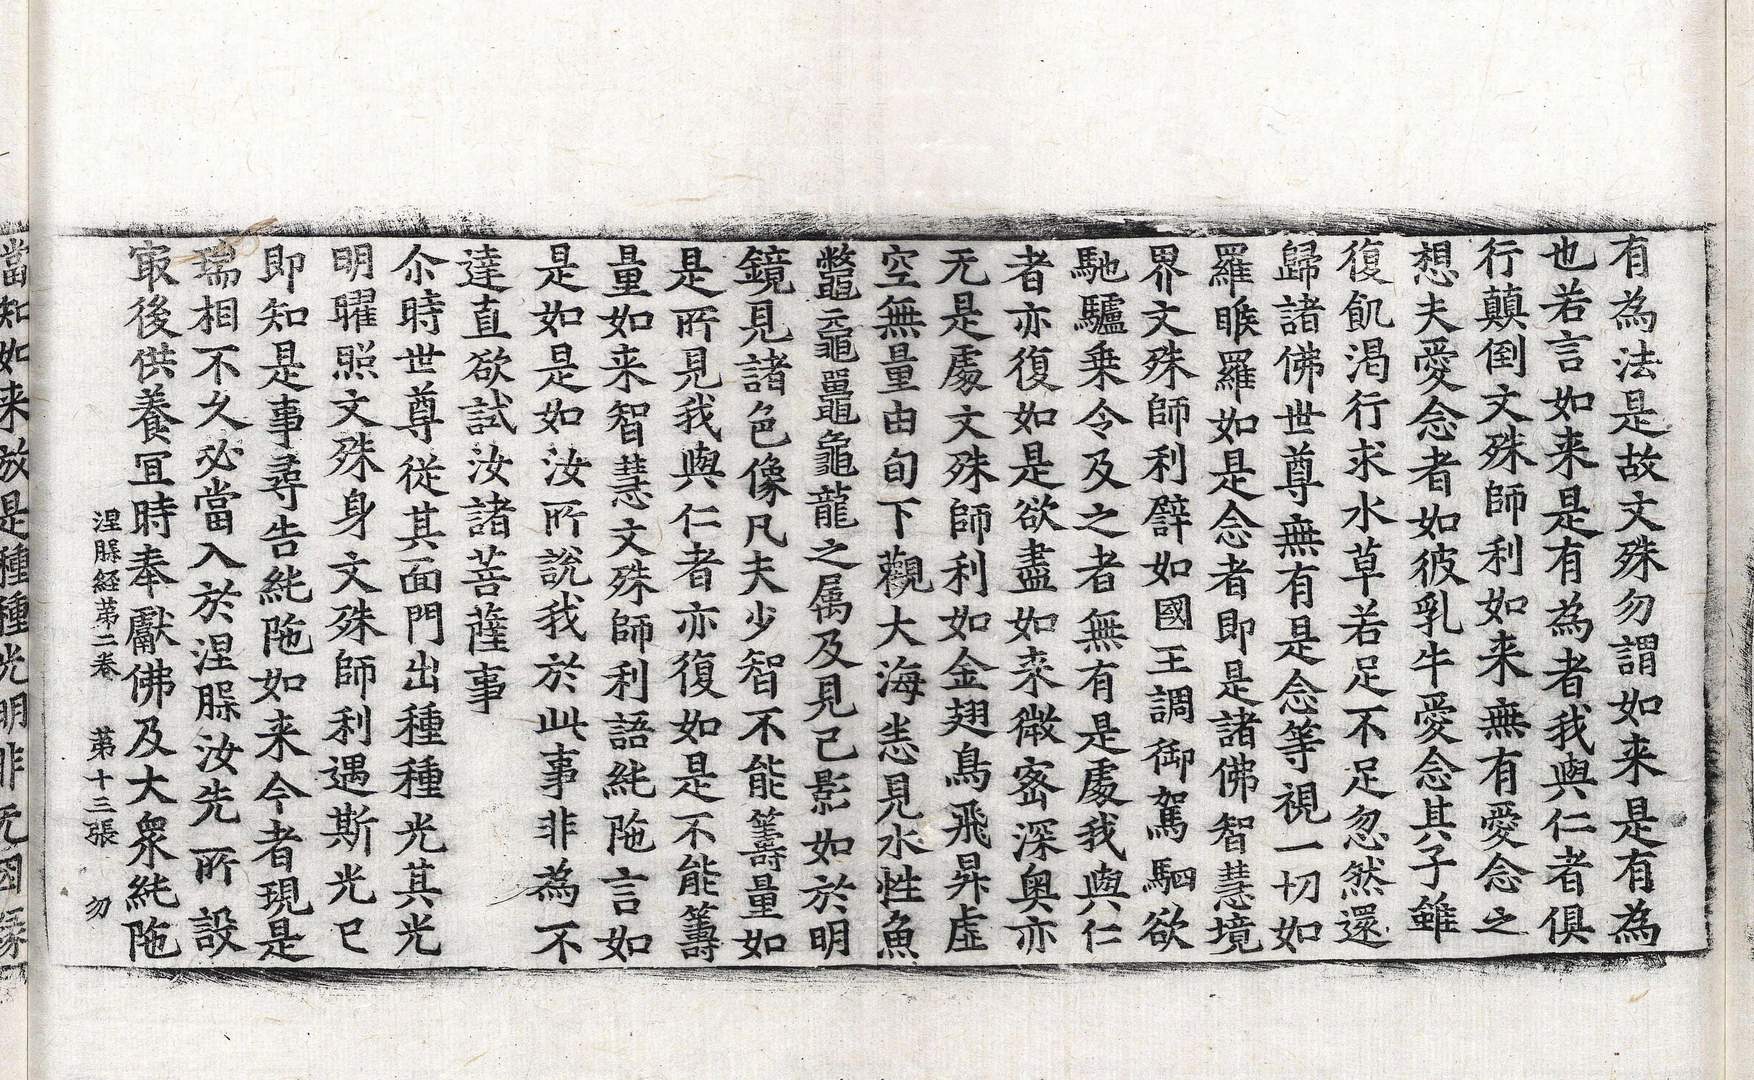 有為法是故文殊勿謂如来是有為
也若言如来是有為者我與仁者俱
行顛倒文殊師利如来無有愛念之
想夫愛念者如彼乳牛愛念其子雖
復飢渴行求水草若足不足忽然還
歸諸佛世尊無有是念等視一切如
羅睺羅如是念者即是諸佛智慧境
界文殊師利譬如國王調御駕駟欲
馳驢乗令及之者無有是處我與仁
者亦復如是欲盡如来微宻深奥亦
无是處文殊師利如金翅鳥飛昇虚
空無量由旬下觀大海悉見水性魚
鼈黿鼉龜龍之属及見己影如於明
鏡見諸色像凡夫少智不能籌量如
是所見我與仁者亦復如是不能籌
量如来智慧文殊師利語純陁言如
是如是如汝所說我於此事非為不
達直欲試汝諸菩薩事
尒時世尊従其面門出種種光其光
明曜照文殊身文殊師利遇斯光已
即知是事尋告純陁如来今者現是
瑞相不久必當入於涅槃汝先所設
冣後供養冝時奉獻佛及大衆純陁
涅槃経苐二卷 苐十三張 勿
當知如来放是種種光明非无因縁